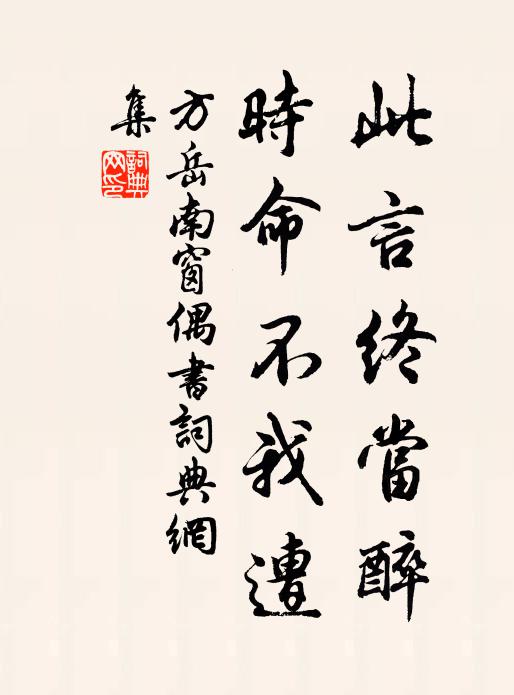 此言終當醉
時命不我遭
方岳南窗偶書詞典網
集
詞典
网印